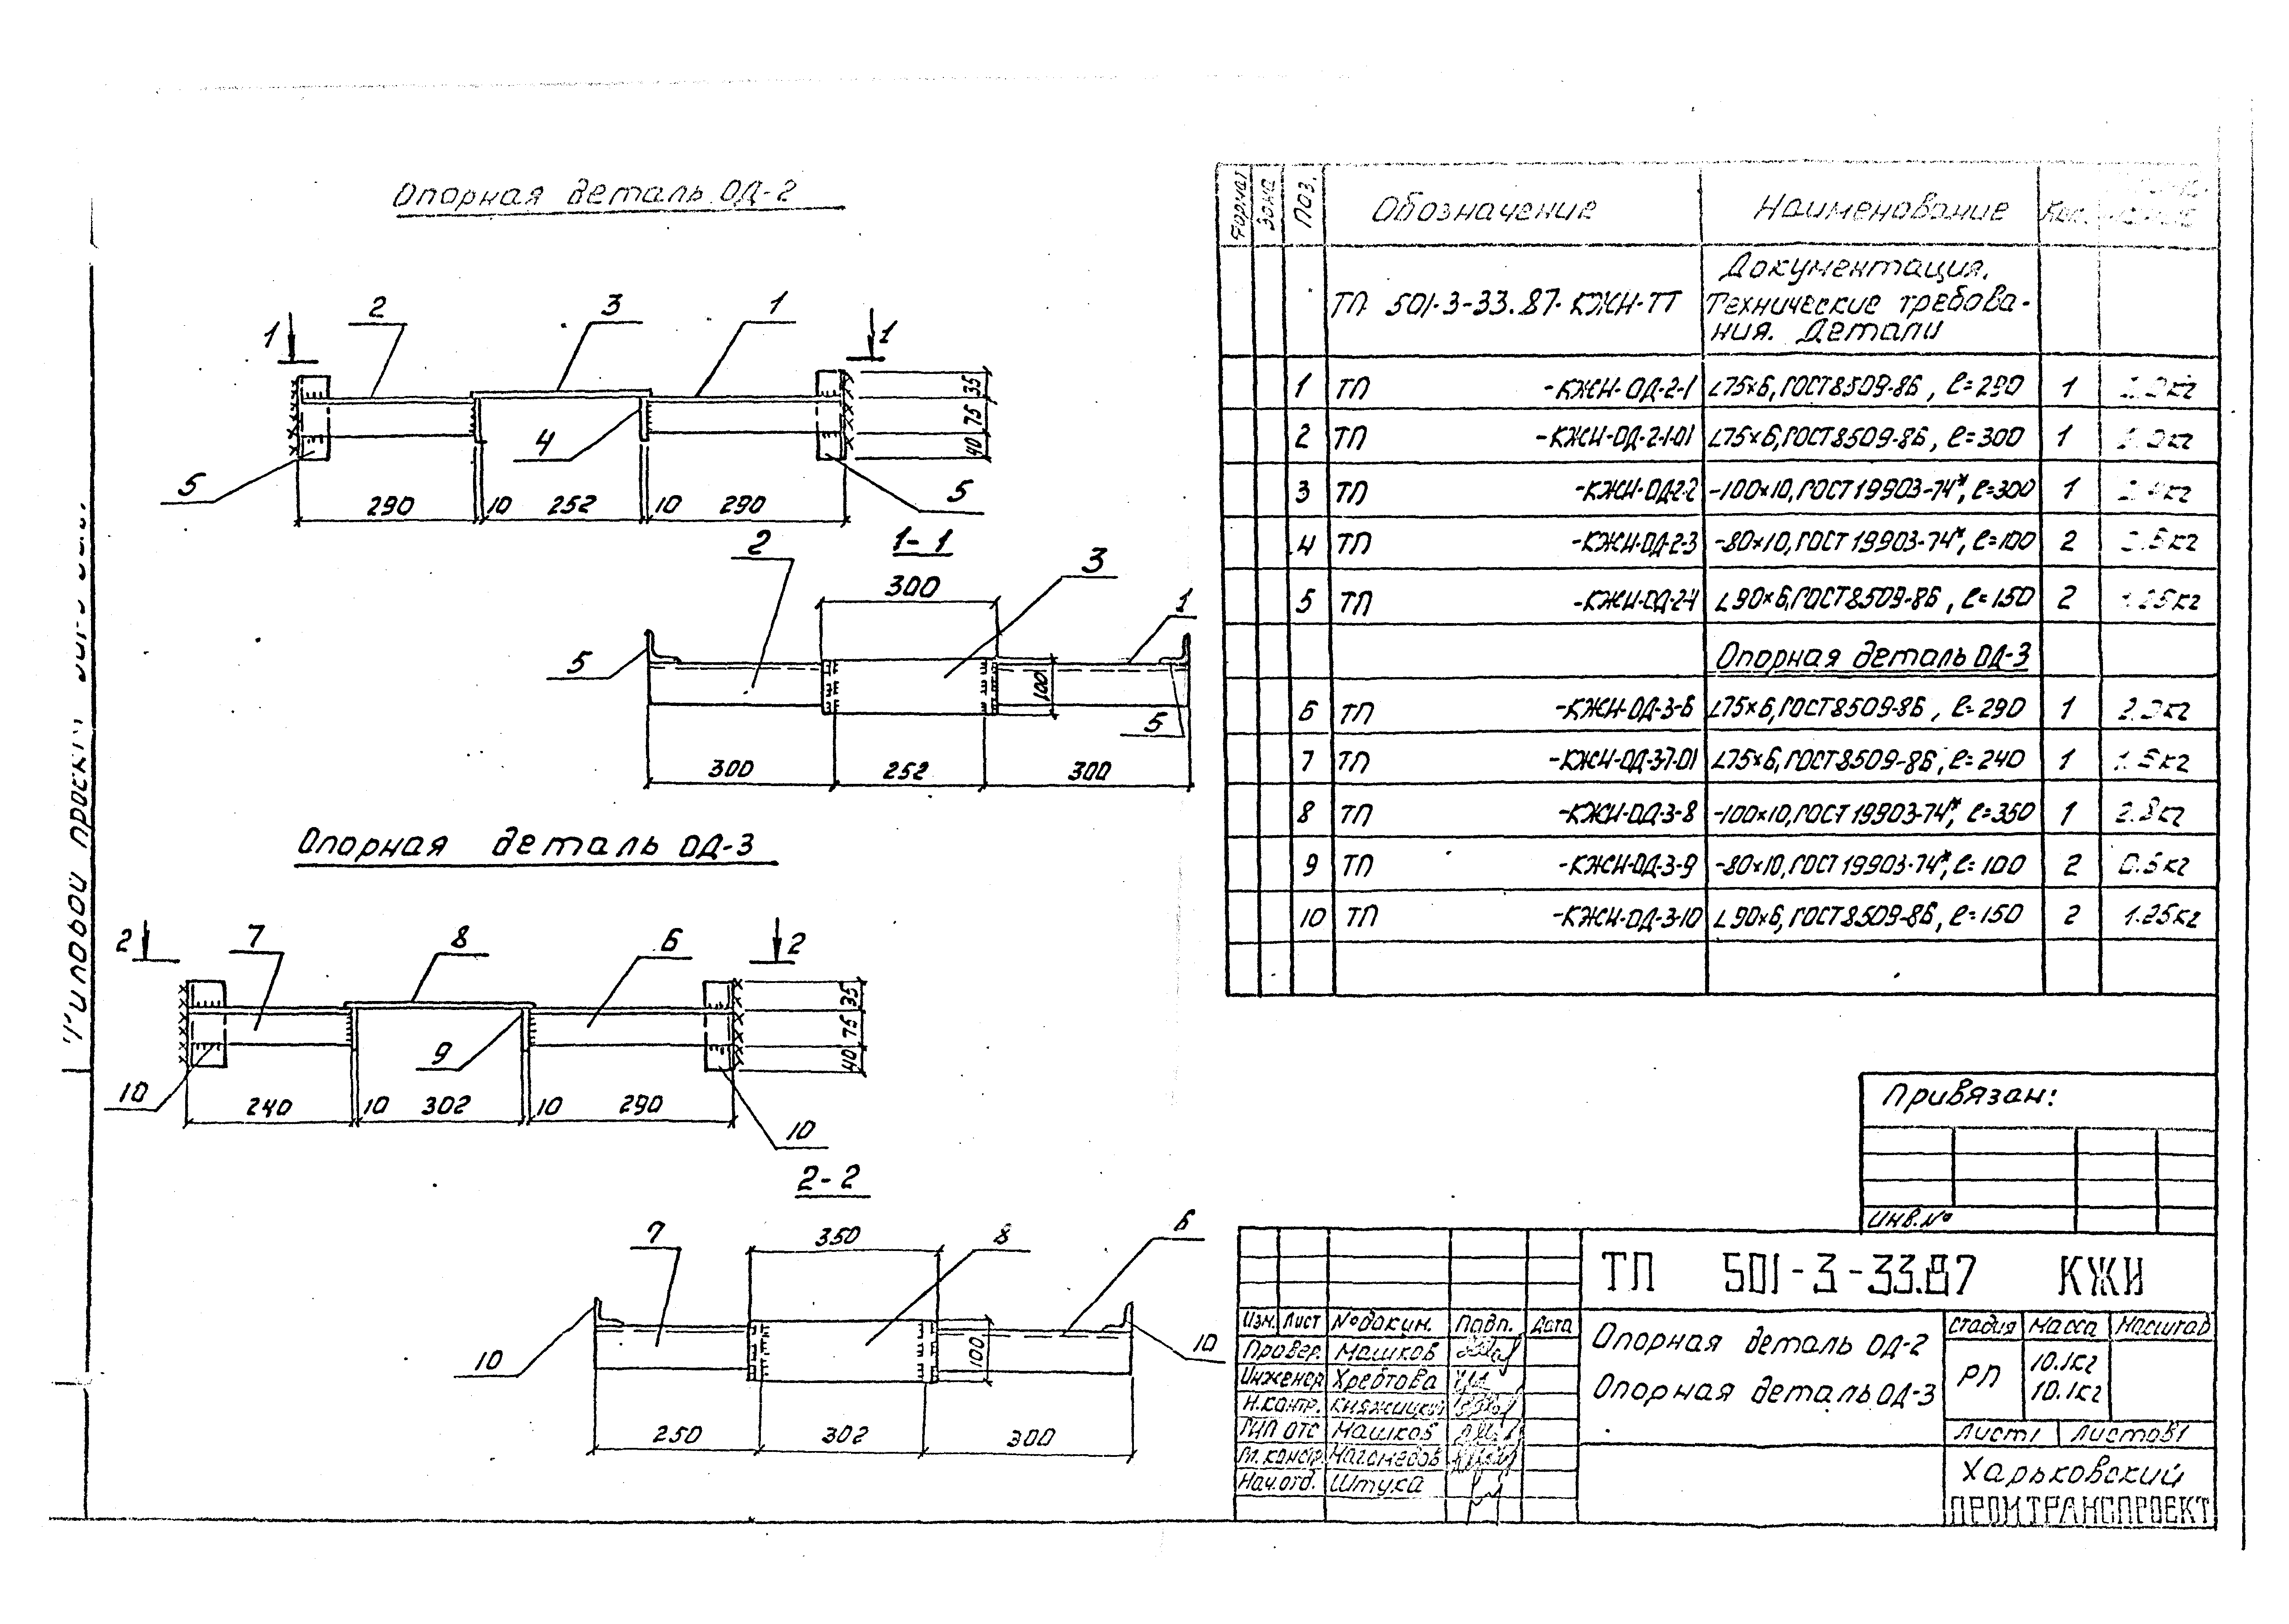 Опорная деталь ОД-2
1 2 3 1 1
4
5 5
35
75
40
290 10 252 10 290
1-1
2 300 3 1
5 100 5
300 252 300
Опорная деталь ОД-3
2 7 8 6 2
9
10 10
35
75
40
240 10 302 10 290
2-2
7 350 8 6
10 100 10
250 302 300
Типовой проект
Формат Зона Поз. Обозначение Наименование Кол.
Документация.
ТП 501-3-33.87-КЖИ-ТТ Технические требова-
ния. Детали
1 ТП -КЖИ-ОД-2-1 ∟75×6, ГОСТ 8509-86, ℓ=290 1
2 ТП -КЖИ-ОД-2-1-01 ∟75×6, ГОСТ 8509-86, ℓ=300 1
3 ТП -КЖИ-ОД-2-2 -100×10, ГОСТ 19903-74*, ℓ=300 1
4 ТП -КЖИ-ОД-2-3 -80×10, ГОСТ 19903-74*, ℓ=100 2
5 ТП -КЖИ-ОД-2-4 ∟90×6, ГОСТ 8509-86, ℓ=150 2 1.25кг
Опорная деталь ОД-3
6 ТП -КЖИ-ОД-3-6 ∟75×6, ГОСТ 8509-86, ℓ=290 1 2.0кг
7 ТП -КЖИ-ОД-3-7-01 ∟75×6, ГОСТ 8509-86, ℓ=240 1
8 ТП -КЖИ-ОД-3-8 -100×10, ГОСТ 19903-74*, ℓ=350 1 2.8кг
9 ТП -КЖИ-ОД-3-9 -80×10, ГОСТ 19903-74*, ℓ=100 2
10 ТП -КЖИ-ОД-3-10 ∟90×6, ГОСТ 8509-86, ℓ=150 2 1.25кг
Привязан:
Инв.№
ТП 501-3-33.87 КЖИ
Изм. Лист № докум. Подп. Дата
Провер. Машков
Инженер Хребтова
Н.контр. Княжицкий
ГИП ОТС Машков
Гл. констр. Нагомедов
Нач.отд. Штука
Опорная деталь ОД-2
Опорная деталь ОД-3
Стадия Масса Масштаб
РП 10.1кг
10.1кг
Лист 1 Листов 1
Харьковский
ПРОМТРАНСПРОЕКТ